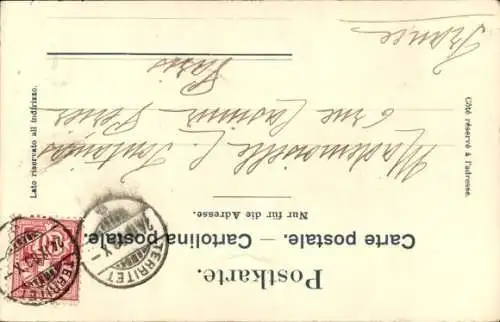 Postkarte.
Carte postale. — Cartolina postale.
Nur für die Adresse.
Mademoiselle C. Fontanès
6 rue Casimir Perier
Paris
France
Côté réservé à l'adresse.
Lato riservato all indirizzo.
TERRITET
TERRITET